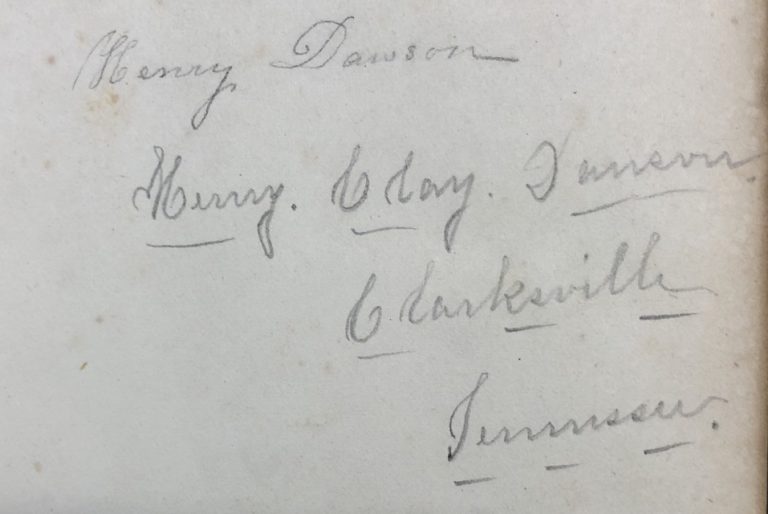 Henry Dawson
Henry. Clay. Dawson.
Clarksville
Tennessee.